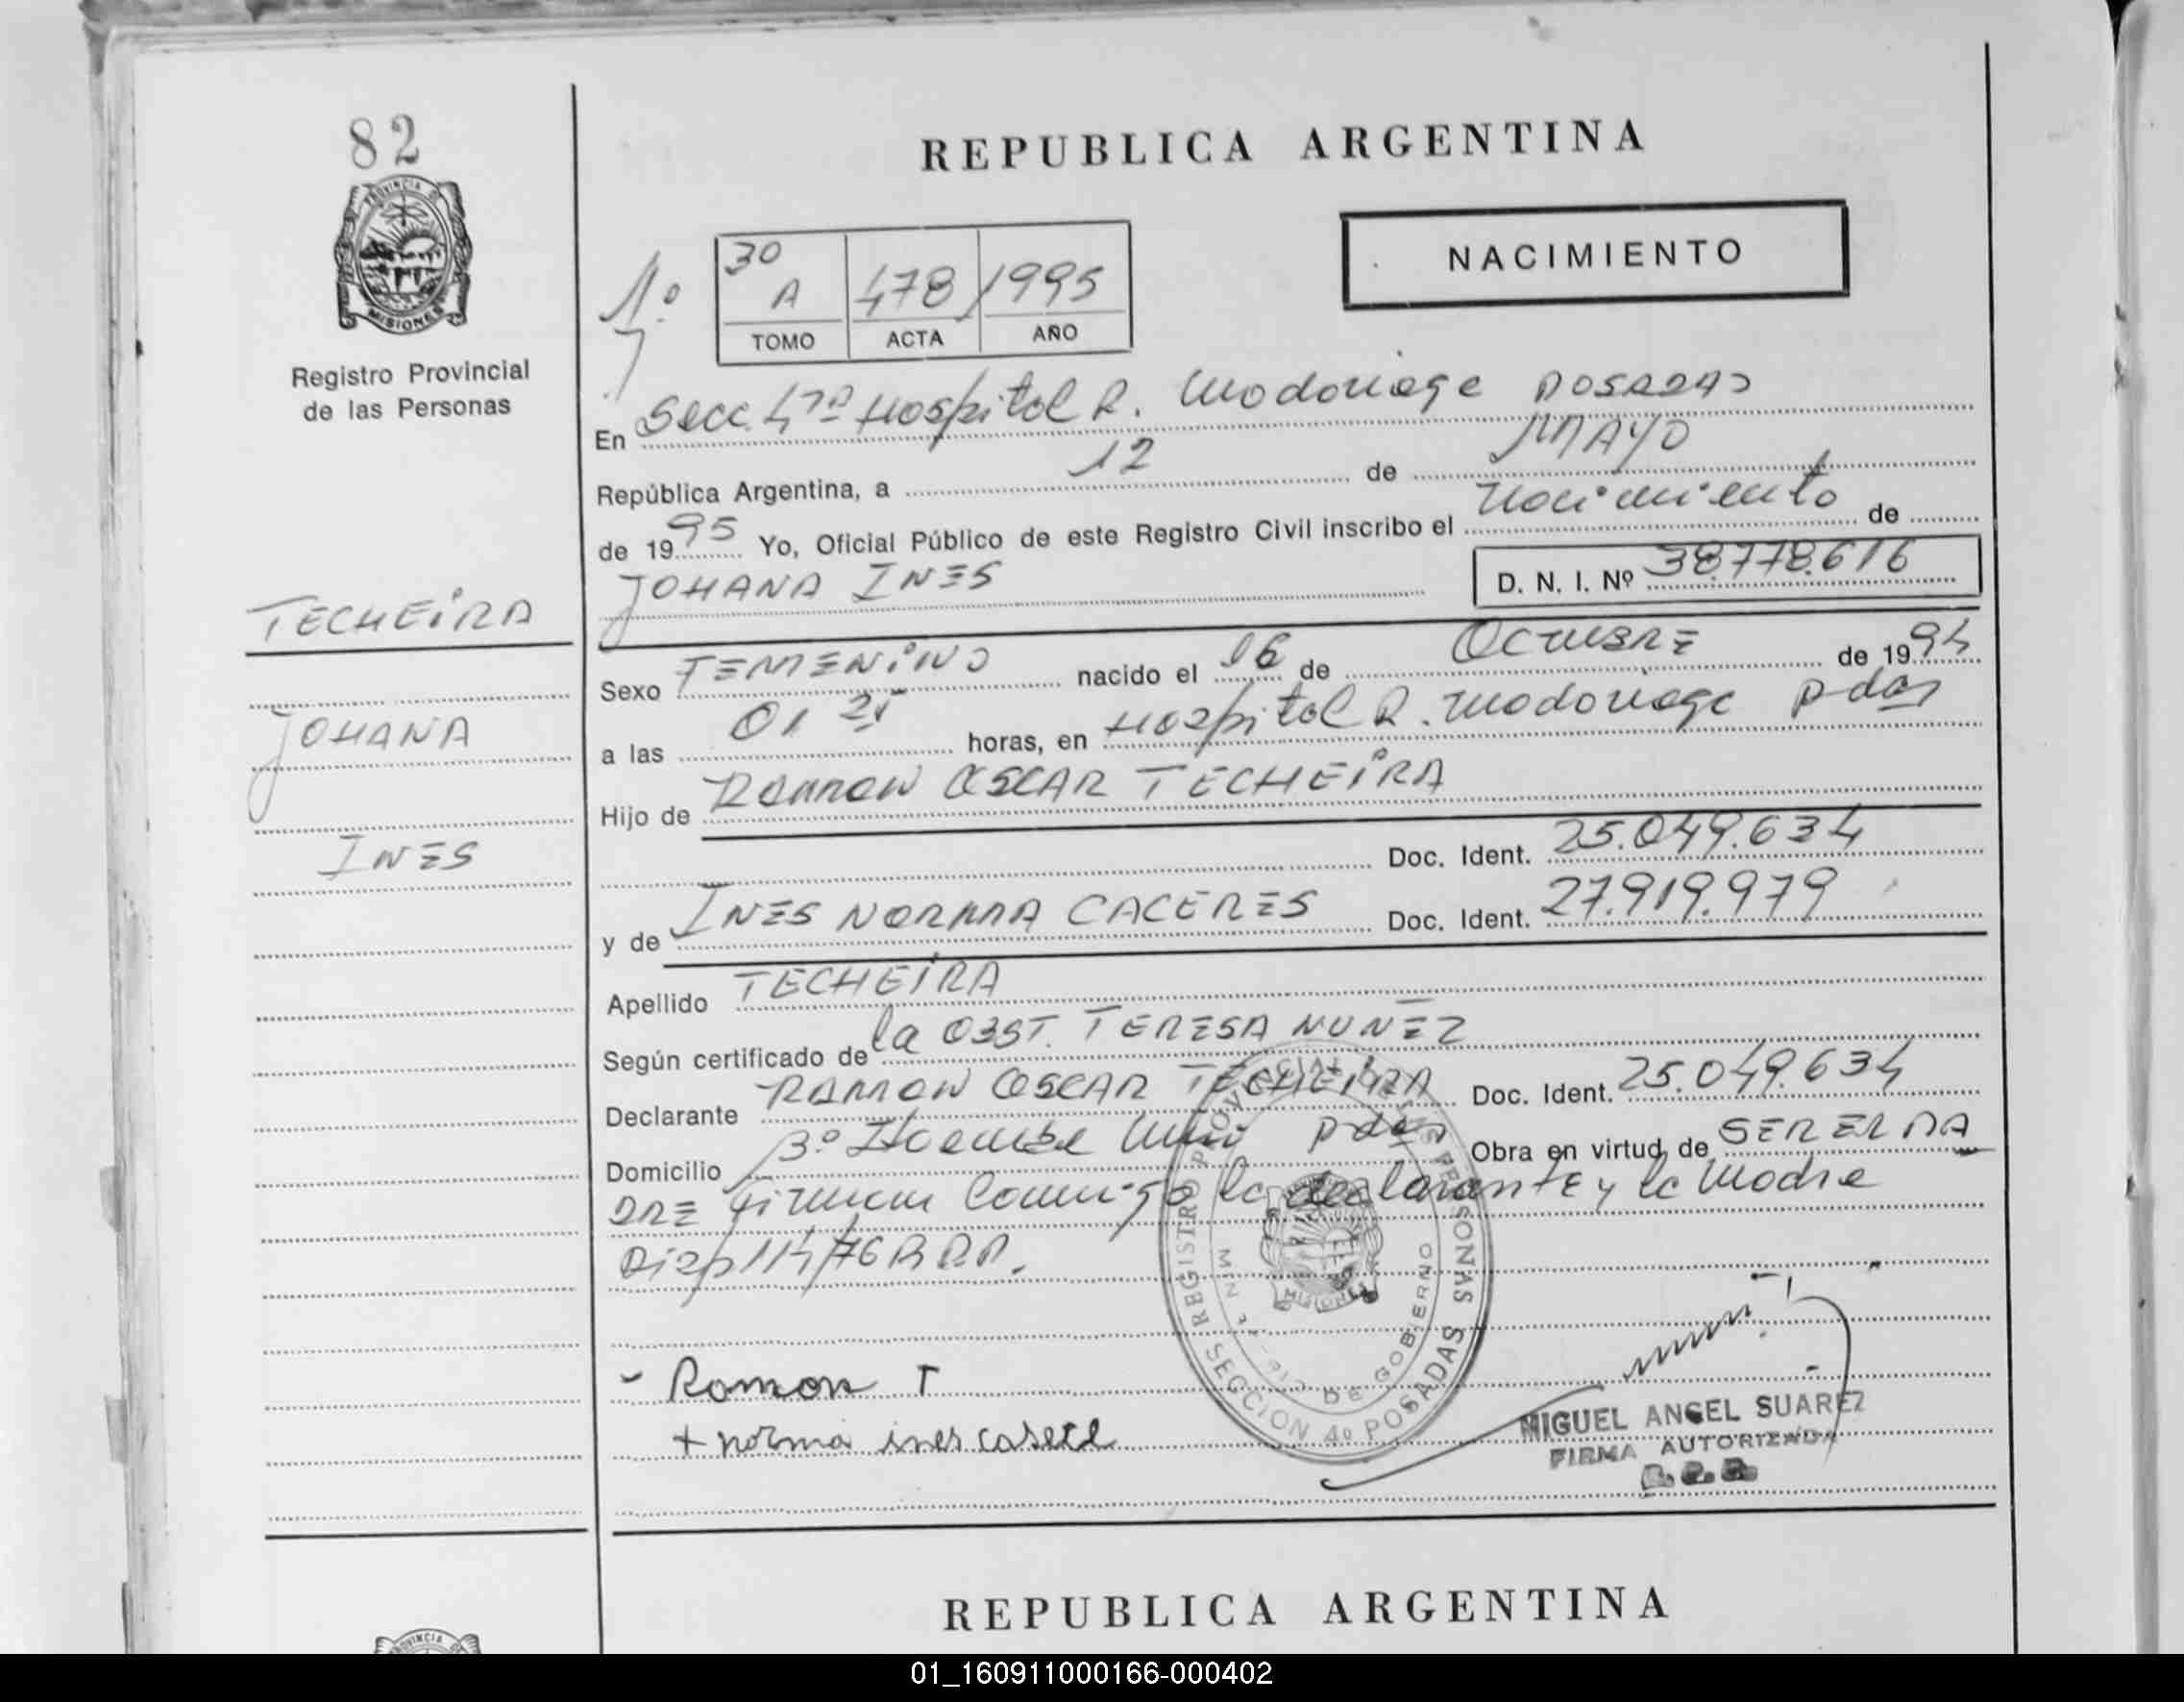 82
PROVINCIA DE
MISIONES
Registro Provincial
de las Personas
TECHEIRA
JOHANA
INES
REPUBLICA ARGENTINA
NACIMIENTO
1º
30 A 478 1995
TOMO ACTA AÑO
En Secc. 4ta Hospital R. Madariaga POSADAS
República Argentina, a 12 de MAYO
de 1995 Yo, Oficial Público de este Registro Civil inscribo el nacimiento de
JOHANA INES D. N. I. Nº 38.778.616
Sexo FEMENINO nacido el 16 de OCTUBRE de 1994
a las 01 horas, en Hospital R. Madariaga Pdas
Hijo de RAMON OSCAR TECHEIRA
Doc. Ident. 25.049.634
y de INES NORMA CACERES Doc. Ident. 27.919.979
Apellido TECHEIRA
Según certificado de la OBST. TERESA NUÑEZ
Declarante RAMON OSCAR TECHEIRA Doc. Ident. 25.049.634
Domicilio Pdas Obra en virtud de SER EL PA
DRE Firman conmigo la declarante y la Madre
Disp 114/76 R.P.P.
REGISTRO PROVINCIAL DE LAS PERSONAS
SECCION 4º POSADAS
DE GOBIERNO
MISIONES
- Ramon T
+ norma ines
MIGUEL ANGEL SUAREZ
FIRMA AUTORIZADA
REPUBLICA ARGENTINA
PROVINCIA
01_160911000166-000402